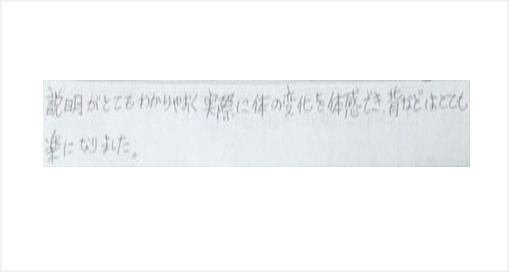 説明がとてもわかりやすく実際に体の変化を体感でき、背などはとても
楽になりました。